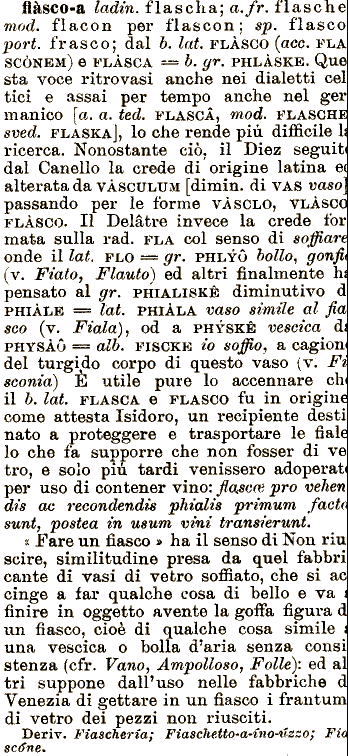 fiàsco-a ladin. flascha; a.fr. flasche
mod. flacon per flascon; sp. flasco
port. frasco; dal b. lat. FLÀSCO (acc. FLA
SCÒNEM) e FLÀSCA = b. gr. PHLÀSKE. Que
sta voce ritrovasi anche nei dialetti cel
tici e assai per tempo anche nel ger
manico [a. a. ted. FLASCÂ, mod. FLASCHE
sved. FLASKA], lo che rende più difficile l
ricerca. Nonostante ciò, il Diez seguit
dal Canello la crede di origine latina e
alterata da VÀSCULUM [dimin. di VAS vaso]
passando per le forme VÀSCLO, VLÀSCO
FLÀSCO. Il Delâtre invece la crede for
mata sulla rad. FLA col senso di soffiare
onde il lat. FLO = gr. PHLYÔ bollo, gonfi
(v. Fiato, Flauto) ed altri finalmente h
pensato al gr. PHIALISKÊ diminutivo d
PHIÀLE = lat. PHIÀLA vaso simile al fia
sco (v. Fiala), od a PHÝSKÊ vescica d
PHYSÀÔ = alb. FISCKE io soffio, a cagion
del turgido corpo di questo vaso (v. Fi
sconia) È utile pure lo accennare ch
il b. lat. FLASCA e FLASCO fu in origine
come attesta Isidoro, un recipiente desti
nato a proteggere e trasportare le fiale
lo che fa supporre che non fosser di ve
tro, e solo più tardi venissero adoperat
per uso di contener vino: flascæ pro vehen
dis ac recondendis phialis primum factæ
sunt, postea in usum vini transierunt.
« Fare un fiasco » ha il senso di Non riu
scire, similitudine presa da quel fabbri
cante di vasi di vetro soffiato, che si ac
cinge a far qualche cosa di bello e va
finire in oggetto avente la goffa figura d
un fiasco, cioè di qualche cosa simile
una vescica o bolla d'aria senza consi
stenza (cfr. Vano, Ampolloso, Folle): ed al
tri suppone dall'uso nelle fabbriche d
Venezia di gettare in un fiasco i frantum
di vetro dei pezzi non riusciti.
Deriv. Fiaschería; Fiaschetto-a-íno-úzzo; Fia
scóne.